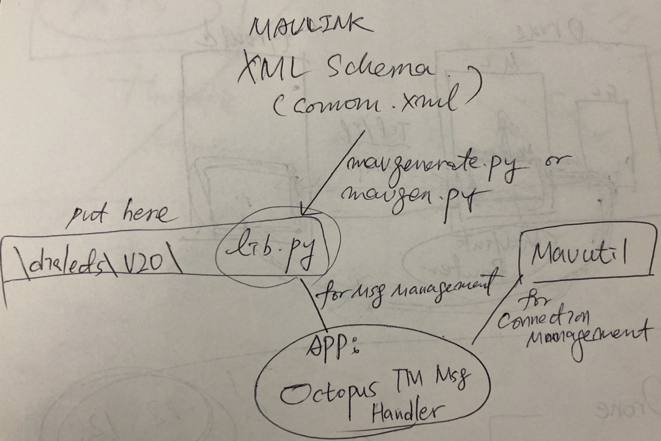 MAVLINK
XML Schema
(comom.xml)
mavgenerate.py or
mavgen.py
put here
\dialects\V20\
lib.py
Mavutil
for Msg Management
for
Connection
Management
APP:
Octopus TM Msg
Handler
Drone